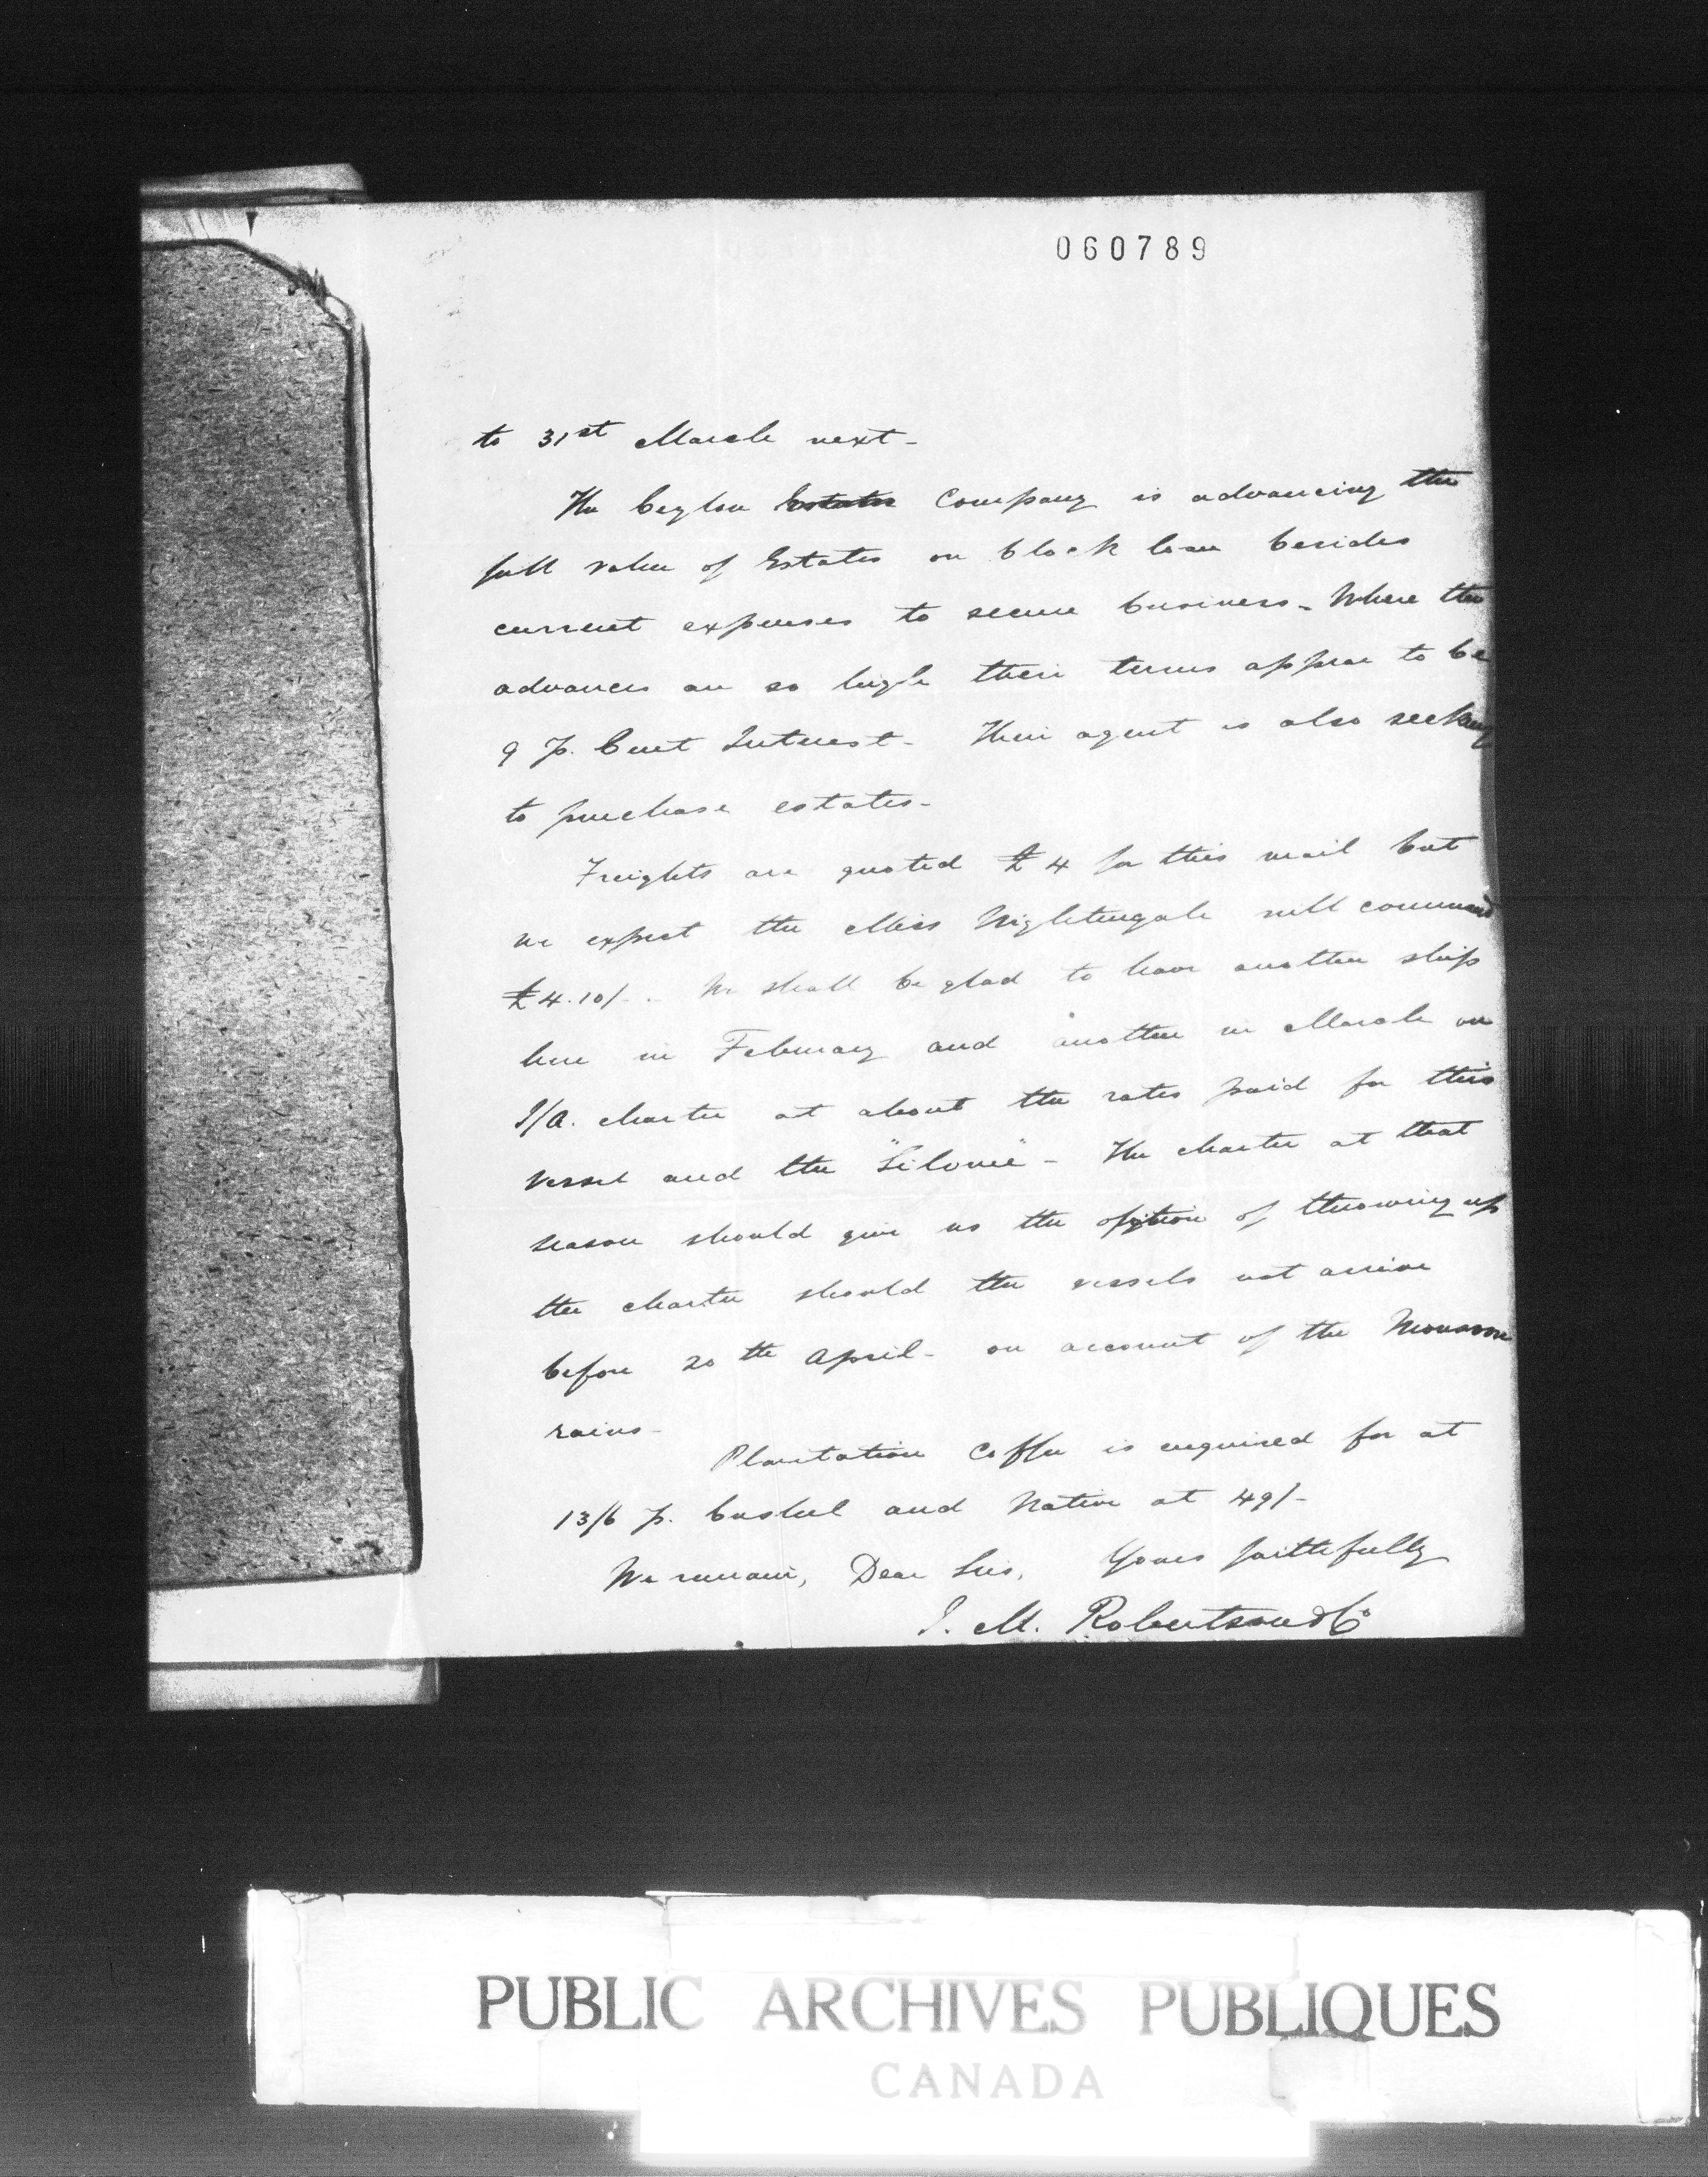 060789
to 31st March next-
The Ceylon Estates Company is advancing the
full value of Estates on block loan besides
current expenses to secure business - Where the
advances are so high their terms appear to be
9 p. Cent Interest - Their agent is also seeking
to purchase estates -
Freights are quoted £4 for this mail but
we expect the Miss Nightingale will command
£4.10/- . We shall be glad to have another ship
here in February and another in March on
J/A. charter at about the rates paid for this
vessel and the - The charter at that
season should give us the option of throwing up
the charter should the vessels not arrive
before 20th April - on account of the Monsoon
rains -
Plantation Coffee is enquired for at
13/6 p. bushel and Native at 49/-
We remain, Dear Sirs, Yours faithfully
J. M. Robertson & Co
PUBLIC ARCHIVES PUBLIQUES
CANADA